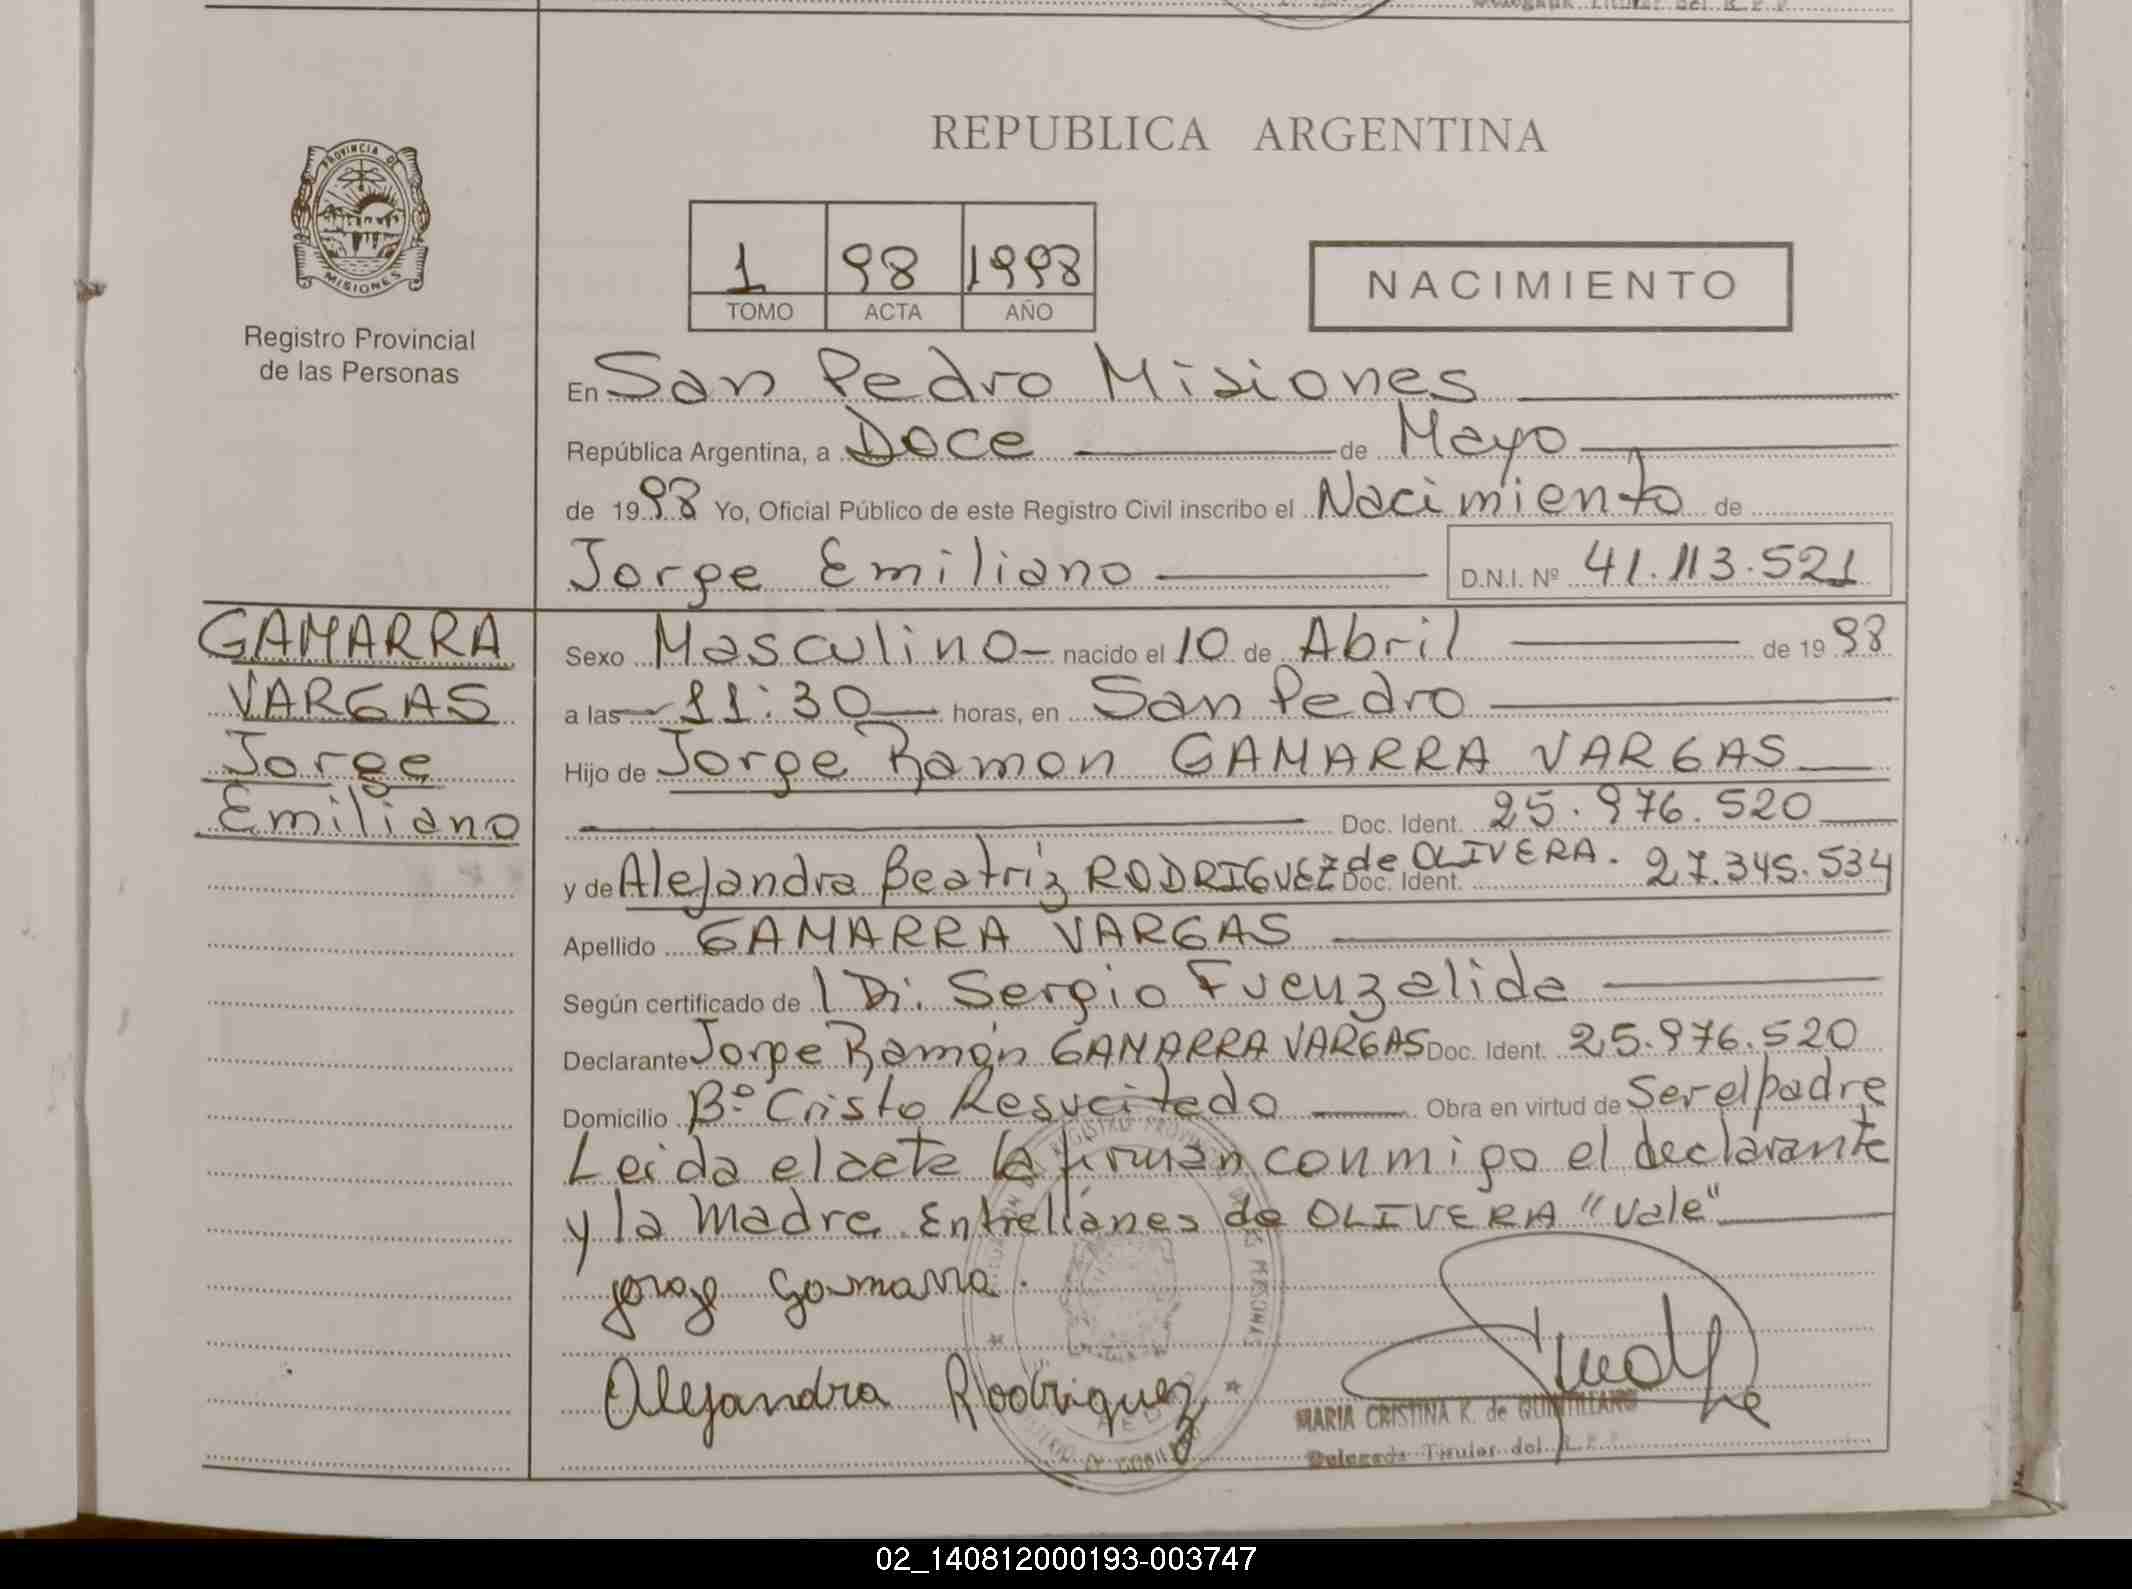 REPUBLICA ARGENTINA
PROVINCIA DE
MISIONES
Registro Provincial
de las Personas
1 98 1998
TOMO ACTA AÑO
NACIMIENTO
En San Pedro Misiones
República Argentina, a Doce de Mayo
de 1998 Yo, Oficial Público de este Registro Civil inscribo el Nacimiento de
Jorge Emiliano D.N.I. Nº 41.113.521
GAMARRA
VARGAS
Jorge
Emiliano
Sexo Masculino nacido el 10 de Abril de 1998
a las 11:30 horas, en San Pedro
Hijo de Jorge Ramon GAMARRA VARGAS
Doc. Ident. 25.976.520
y de Alejandra Beatriz RODRIGUEZ de OLIVERA. Doc. Ident. 27.345.534
Apellido GAMARRA VARGAS
Según certificado de Di. Sergio Fuenzalida
Declarante Jorge Ramón GAMARRA VARGAS Doc. Ident. 25.976.520
Domicilio Bº Cristo Resucitado Obra en virtud de Ser el padre
Leida el acta la firman conmigo el declarante
y la Madre. Entrelíanes de OLIVERA "Vale"
Jorge Gamarra.
Alejandra Rodriguez
MARIA CRISTINA K. de QUINTILLANO
Delegada Titular del R.P.P.
02_140812000193-003747